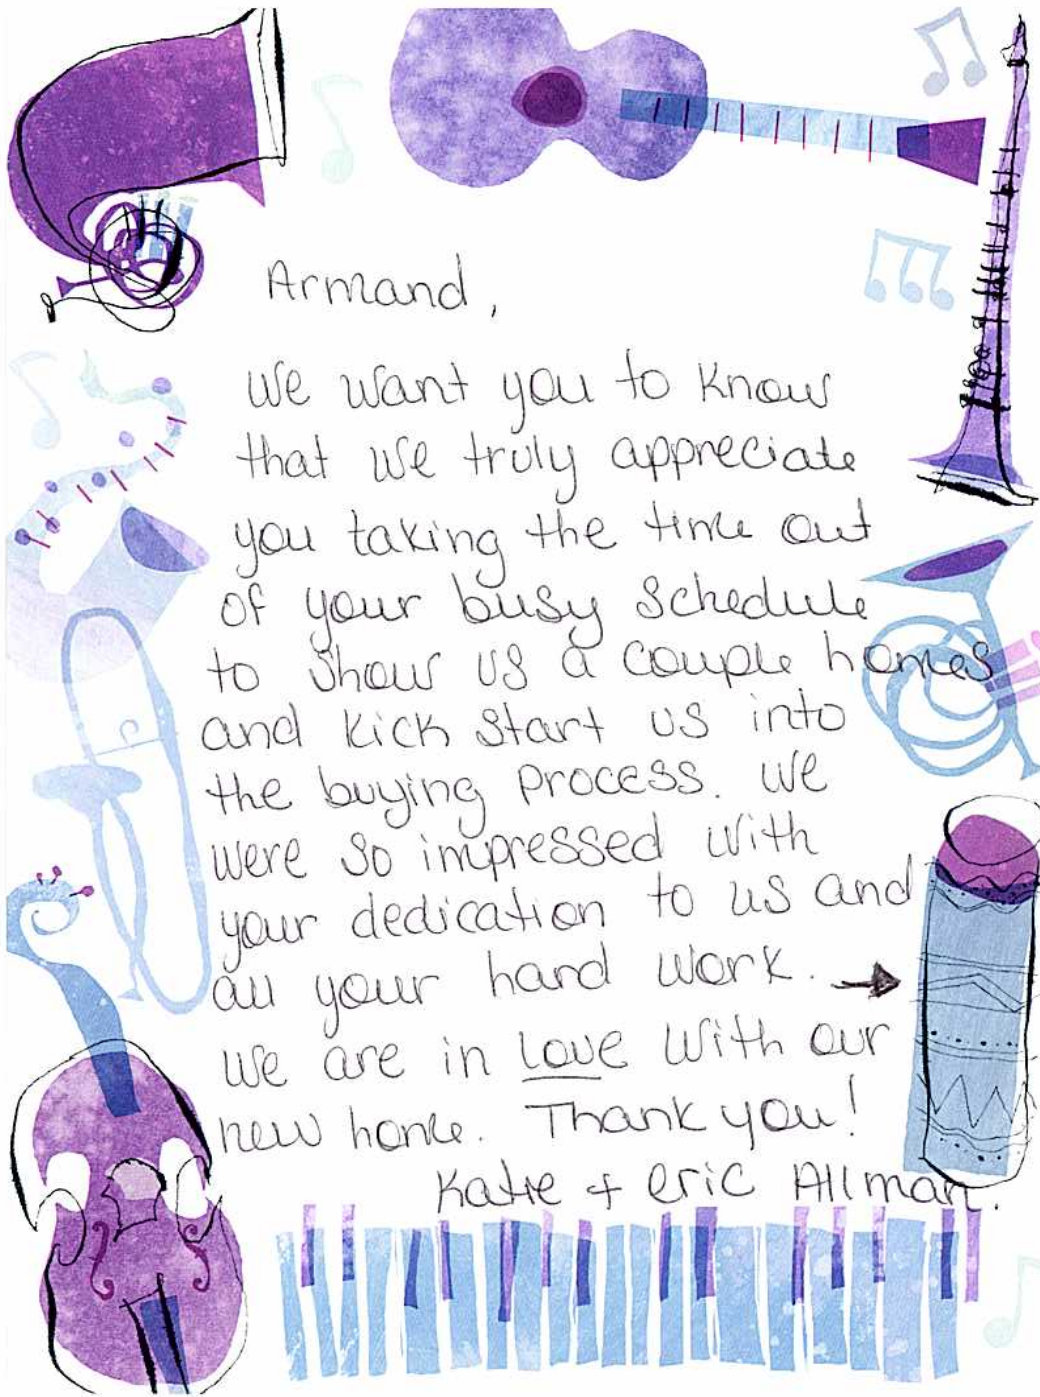 Armand,
We want you to know
that we truly appreciate
you taking the time out
of your busy schedule
to show us a couple homes
and kick start us into
the buying process. We
were so impressed with
your dedication to us and
all your hard work. →
We are in love with our
new home. Thank you!
Katie + Eric Allman.